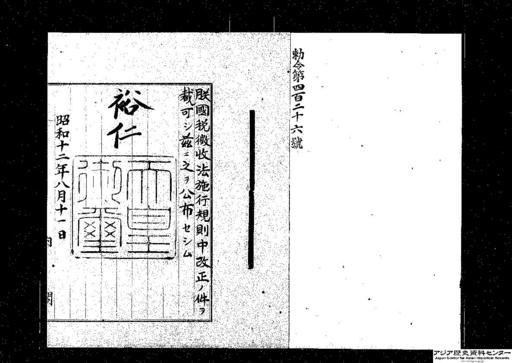 勅令第四百二十六號
朕國税徴收法施行規則中改正ノ件ヲ
裁可シ茲ニ之ヲ公布セシム
裕仁
天皇
御璽
昭和十二年八月十一日
内閣
アジア歴史資料センター
Japan Center for Asian Historical Records